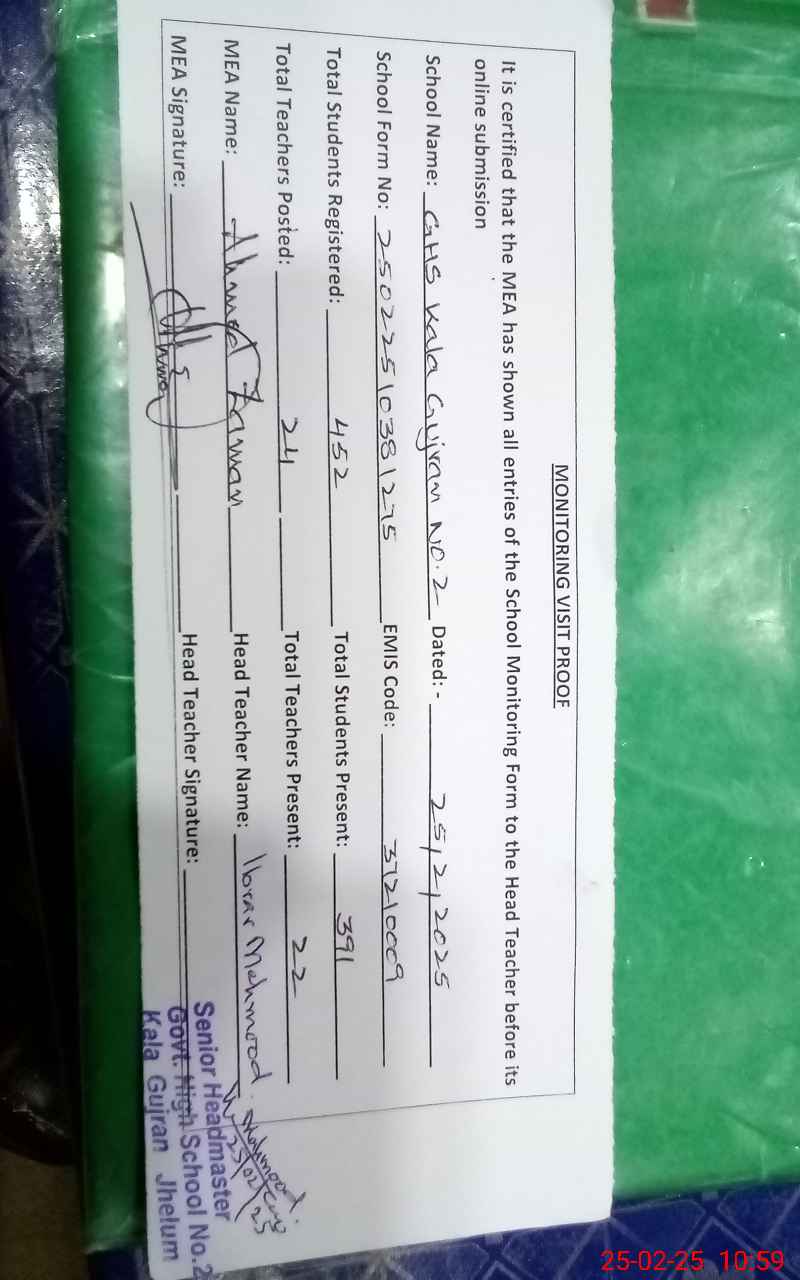 MONITORING VISIT PROOF
It is certified that the MEA has shown all entries of the School Monitoring Form to the Head Teacher before its
online submission
School Name: GHS Kala Gujran NO.2 Dated: - 25/2/2025
School Form No: 25022510381275 EMIS Code: 37210009
Total Students Registered: 452 Total Students Present: 391
Total Teachers Posted: 24 Total Teachers Present: 22
MEA Name: Ahmed Zaman Head Teacher Name: Ibrar Mehmood
MEA Signature: Head Teacher Signature:
25/02/25
Senior Headmaster
Govt. High School No.2
Kala Gujran Jhelum
25-02-25 10:59